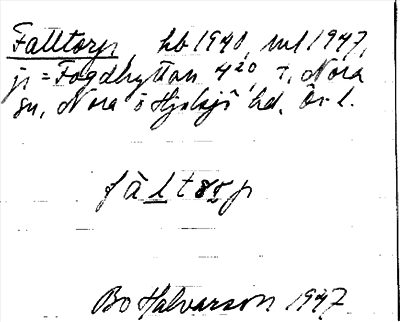 Falltorp, hb 1940, ml 1947,
jr = Fogdhyttan 4²⁰, t. Nora
sn, Nora o Hjulsjö hd. Ör l.
fàltorp
Bo Halvarson 1947